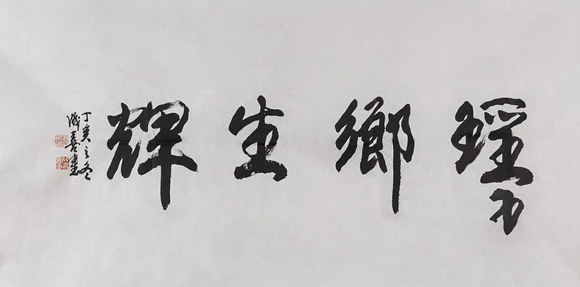 鄉生輝
丁亥之冬
喜書